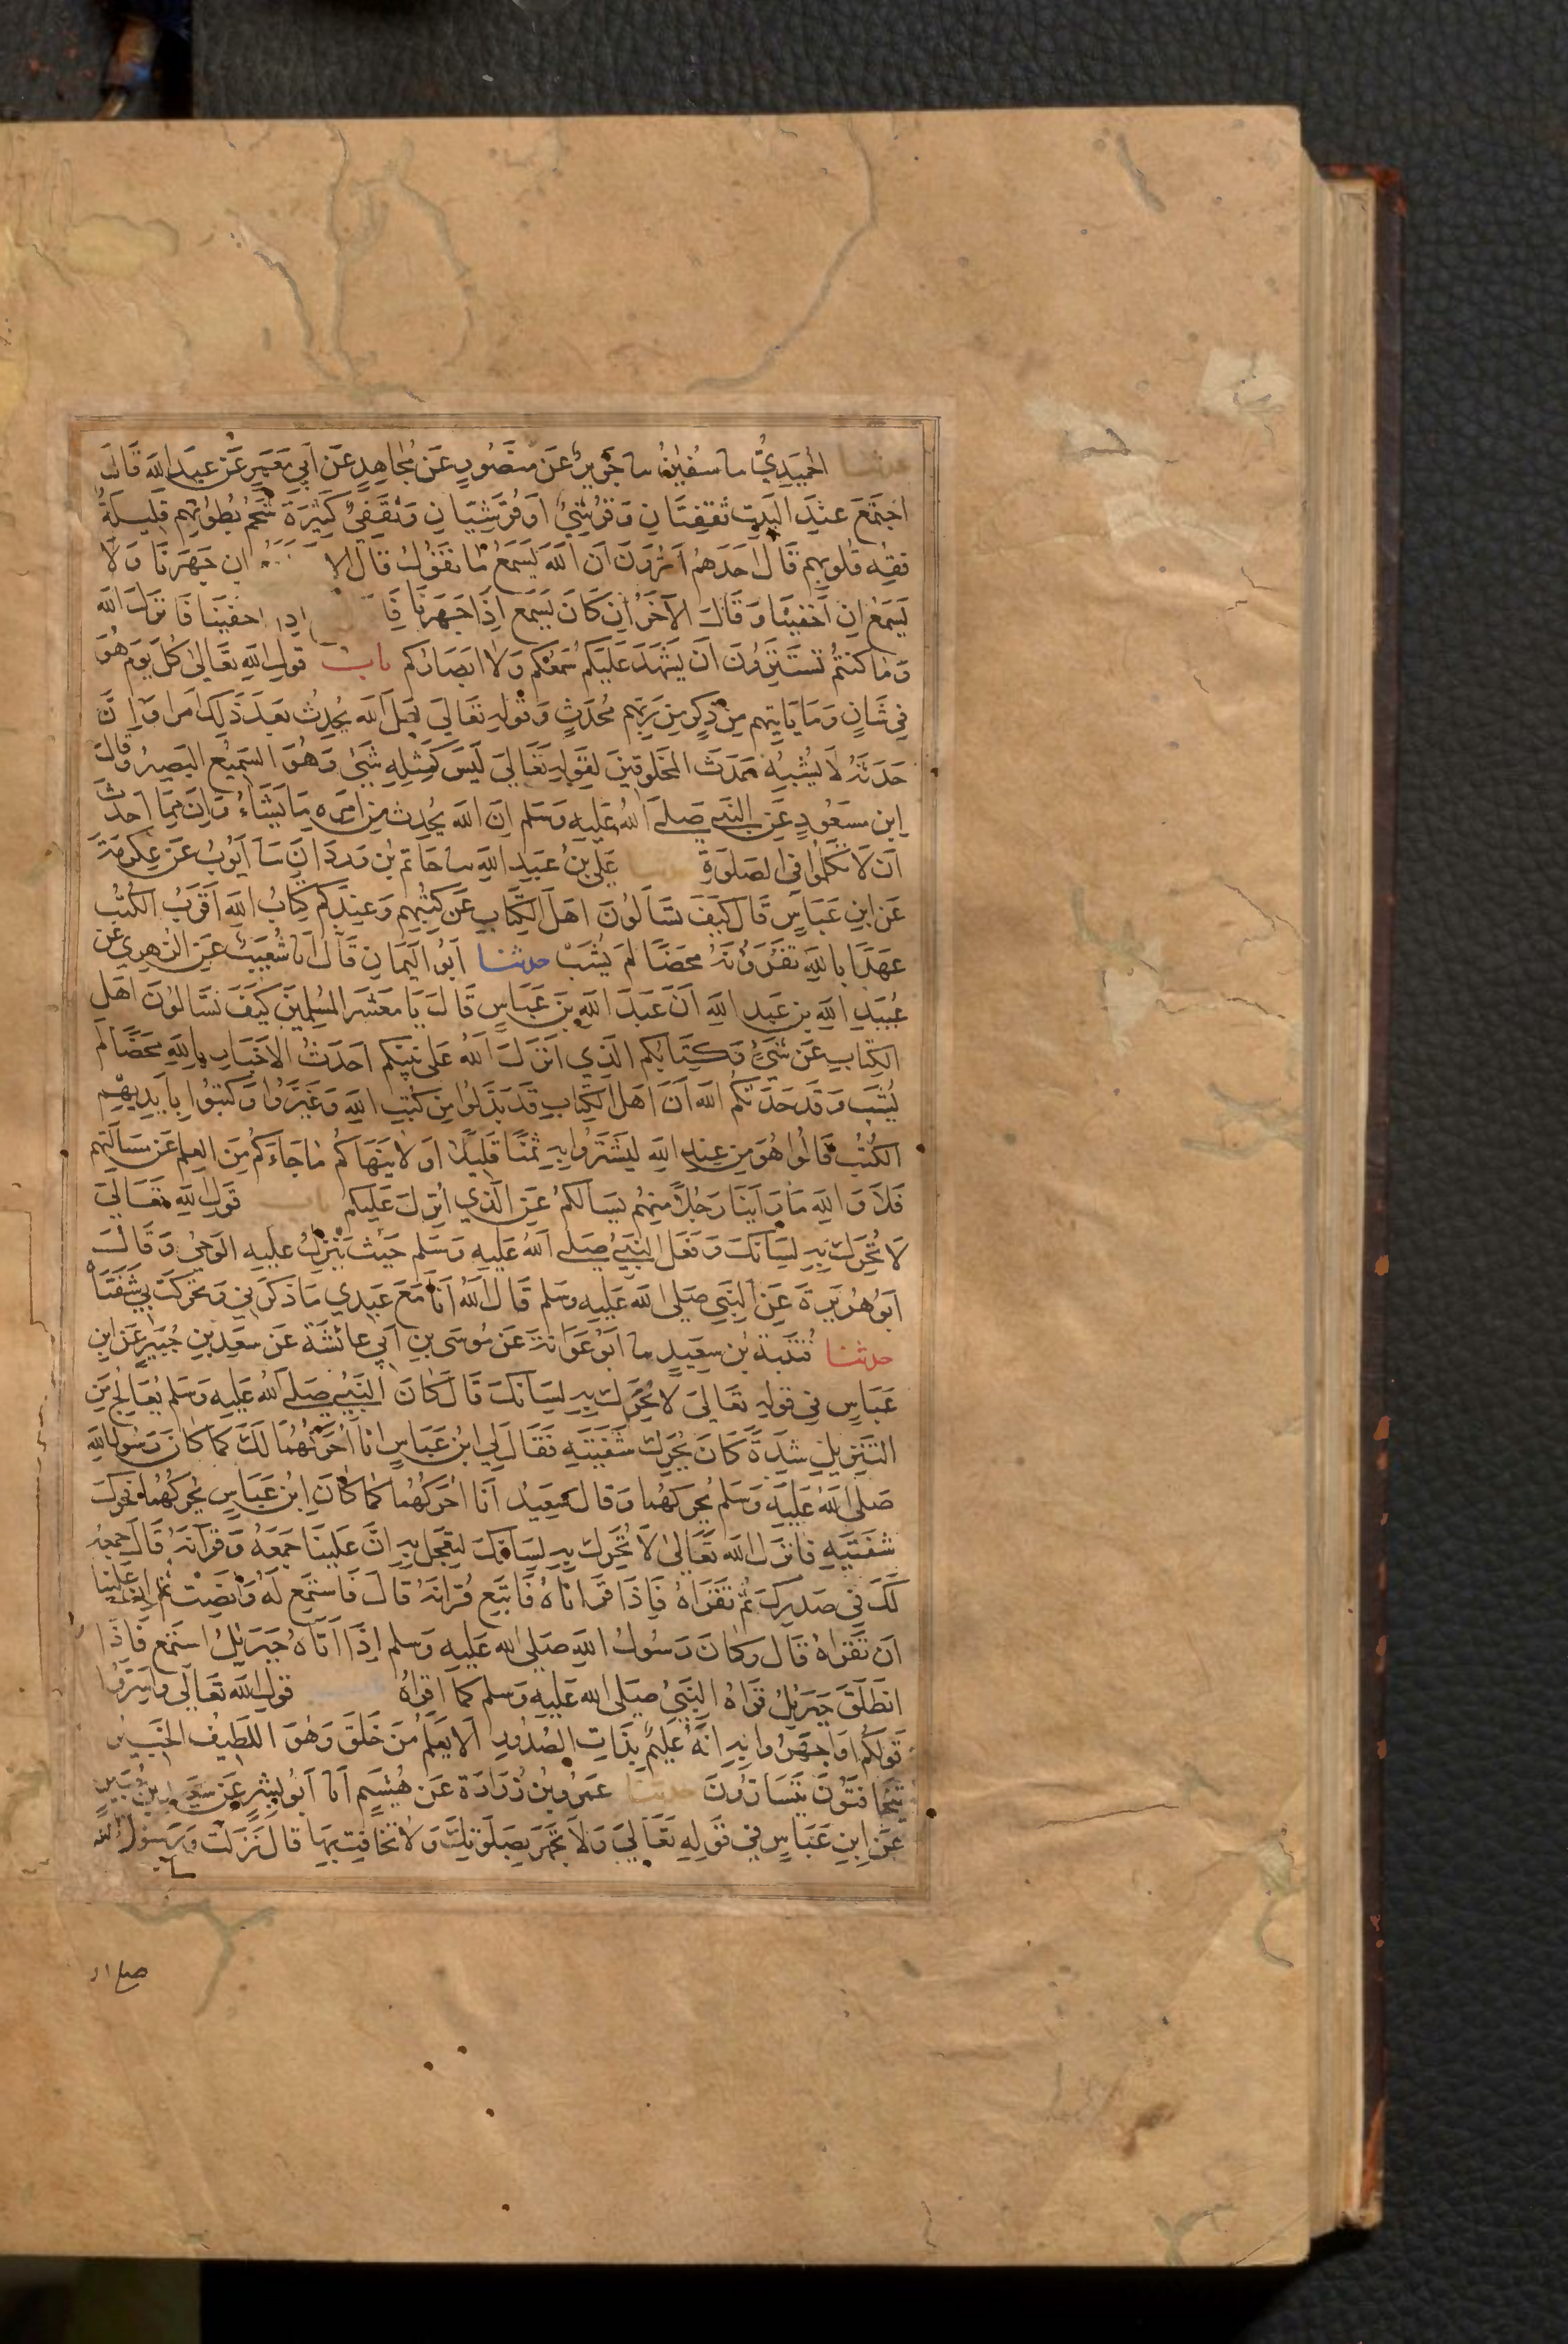 حدثنا الحميدي ثنا سفين ثنا جرير عن منصور عن مجاهد عن ابي معمر عن عبد الله قال
اجتمع عند البيت ثقفيان وقرشي او قرشيان وثقفي كثيرة شحم بطونهم قليلة
فقه قلوبهم قال احدهم اترون ان الله يسمع ما نقول قال الا ان جهرنا ولا
يسمع ان اخفينا وقال الآخر ان كان يسمع اذا جهرنا فا اذا اخفينا فانزل الله
وما كنتم تستترون ان يشهد عليكم سمعكم ولا ابصاركم باب قول الله تعالى كل يوم هو
في شان وما ياتيهم من ذكر من ربهم محدث وقوله تعالى لعل الله يحدث بعد ذلك امرا وان
حدثه لا يشبه حدث المخلوقين لقوله تعالى ليس كمثله شيئ وهو السميع البصير وقال
ابن مسعود عن النبي صلى الله عليه وسلم ان الله يحدث من امره ما يشاء وان مما احدث
ان لا تكلموا في الصلوة حدثنا علي بن عبد الله ثنا حاتم بن وردان ثنا ايوب عن عكرمة
عن ابن عباس قال كيف تسألون اهل الكتاب عن كتبهم وعندكم كتاب الله اقرب الكتب
عهدا بالله تقرؤنه محضا لم يشب حدثنا ابو اليمان قال انا شعيب عن الزهري عن
عبيد الله بن عبد الله ان عبد الله بن عباس قال يا معشر المسلمين كيف تسألون اهل
الكتاب عن شيء وكتابكم الذي انزل الله على نبيكم احدث الاخبار بالله محضا لم
يشب وقد حدثكم الله ان اهل الكتاب قد بدلوا من كتب الله وغيروا وكتبوا بايديهم
الكتب قالوا هو من عند الله ليشتروا به ثمنا قليلا او لا ينهاكم ما جاءكم من العلم عن مسألتهم
فلا والله ما راينا رجلا منهم يسالكم عن الذي انزل عليكم باب قول الله تعالى
لا تحرك به لسانك وفعل النبي صلى الله عليه وسلم حيث ينزل عليه الوحي وقال
ابو هريرة عن النبي صلى الله عليه وسلم قال الله انا مع عبدي ما ذكرني وتحركت بي شفتاه
حدثنا قتيبة بن سعيد ثنا ابو عوانة عن موسى بن ابي عائشة عن سعيد بن جبير عن ابن
عباس في قوله تعالى لا تحرك به لسانك قال كان النبي صلى الله عليه وسلم يعالج من
التنزيل شدة كان يحرك شفتيه فقال لي ابن عباس انا احركهما لك كما كان رسول الله
صلى الله عليه وسلم يحركهما وقال سعيد انا احركهما كما كان ابن عباس يحركهما فحرك
شفتيه فانزل الله تعالى لا تحرك به لسانك لتعجل به ان علينا جمعه وقرآنه قال جمعه
لك في صدرك ثم تقراه فاذا قراناه فاتبع قرانه قال فاستمع له وانصت ثم ان علينا
ان تقراه قال وكان رسول الله صلى الله عليه وسلم اذا اتاه جبريل استمع فاذا
انطلق جبريل قراه النبي صلى الله عليه وسلم كما اقراه قول الله تعالى واسروا
قولكم او اجهروا به انه عليم بذات الصدور الا يعلم من خلق وهو اللطيف الخبير
يتخافتون يتسارون حدثنا عمرو بن زرارة عن هشيم انا ابو بشر عن سعيد بن جبير
عن ابن عباس في قوله تعالى ولا تجهر بصلوتك ولا تخافت بها قال نزلت ورسول الله